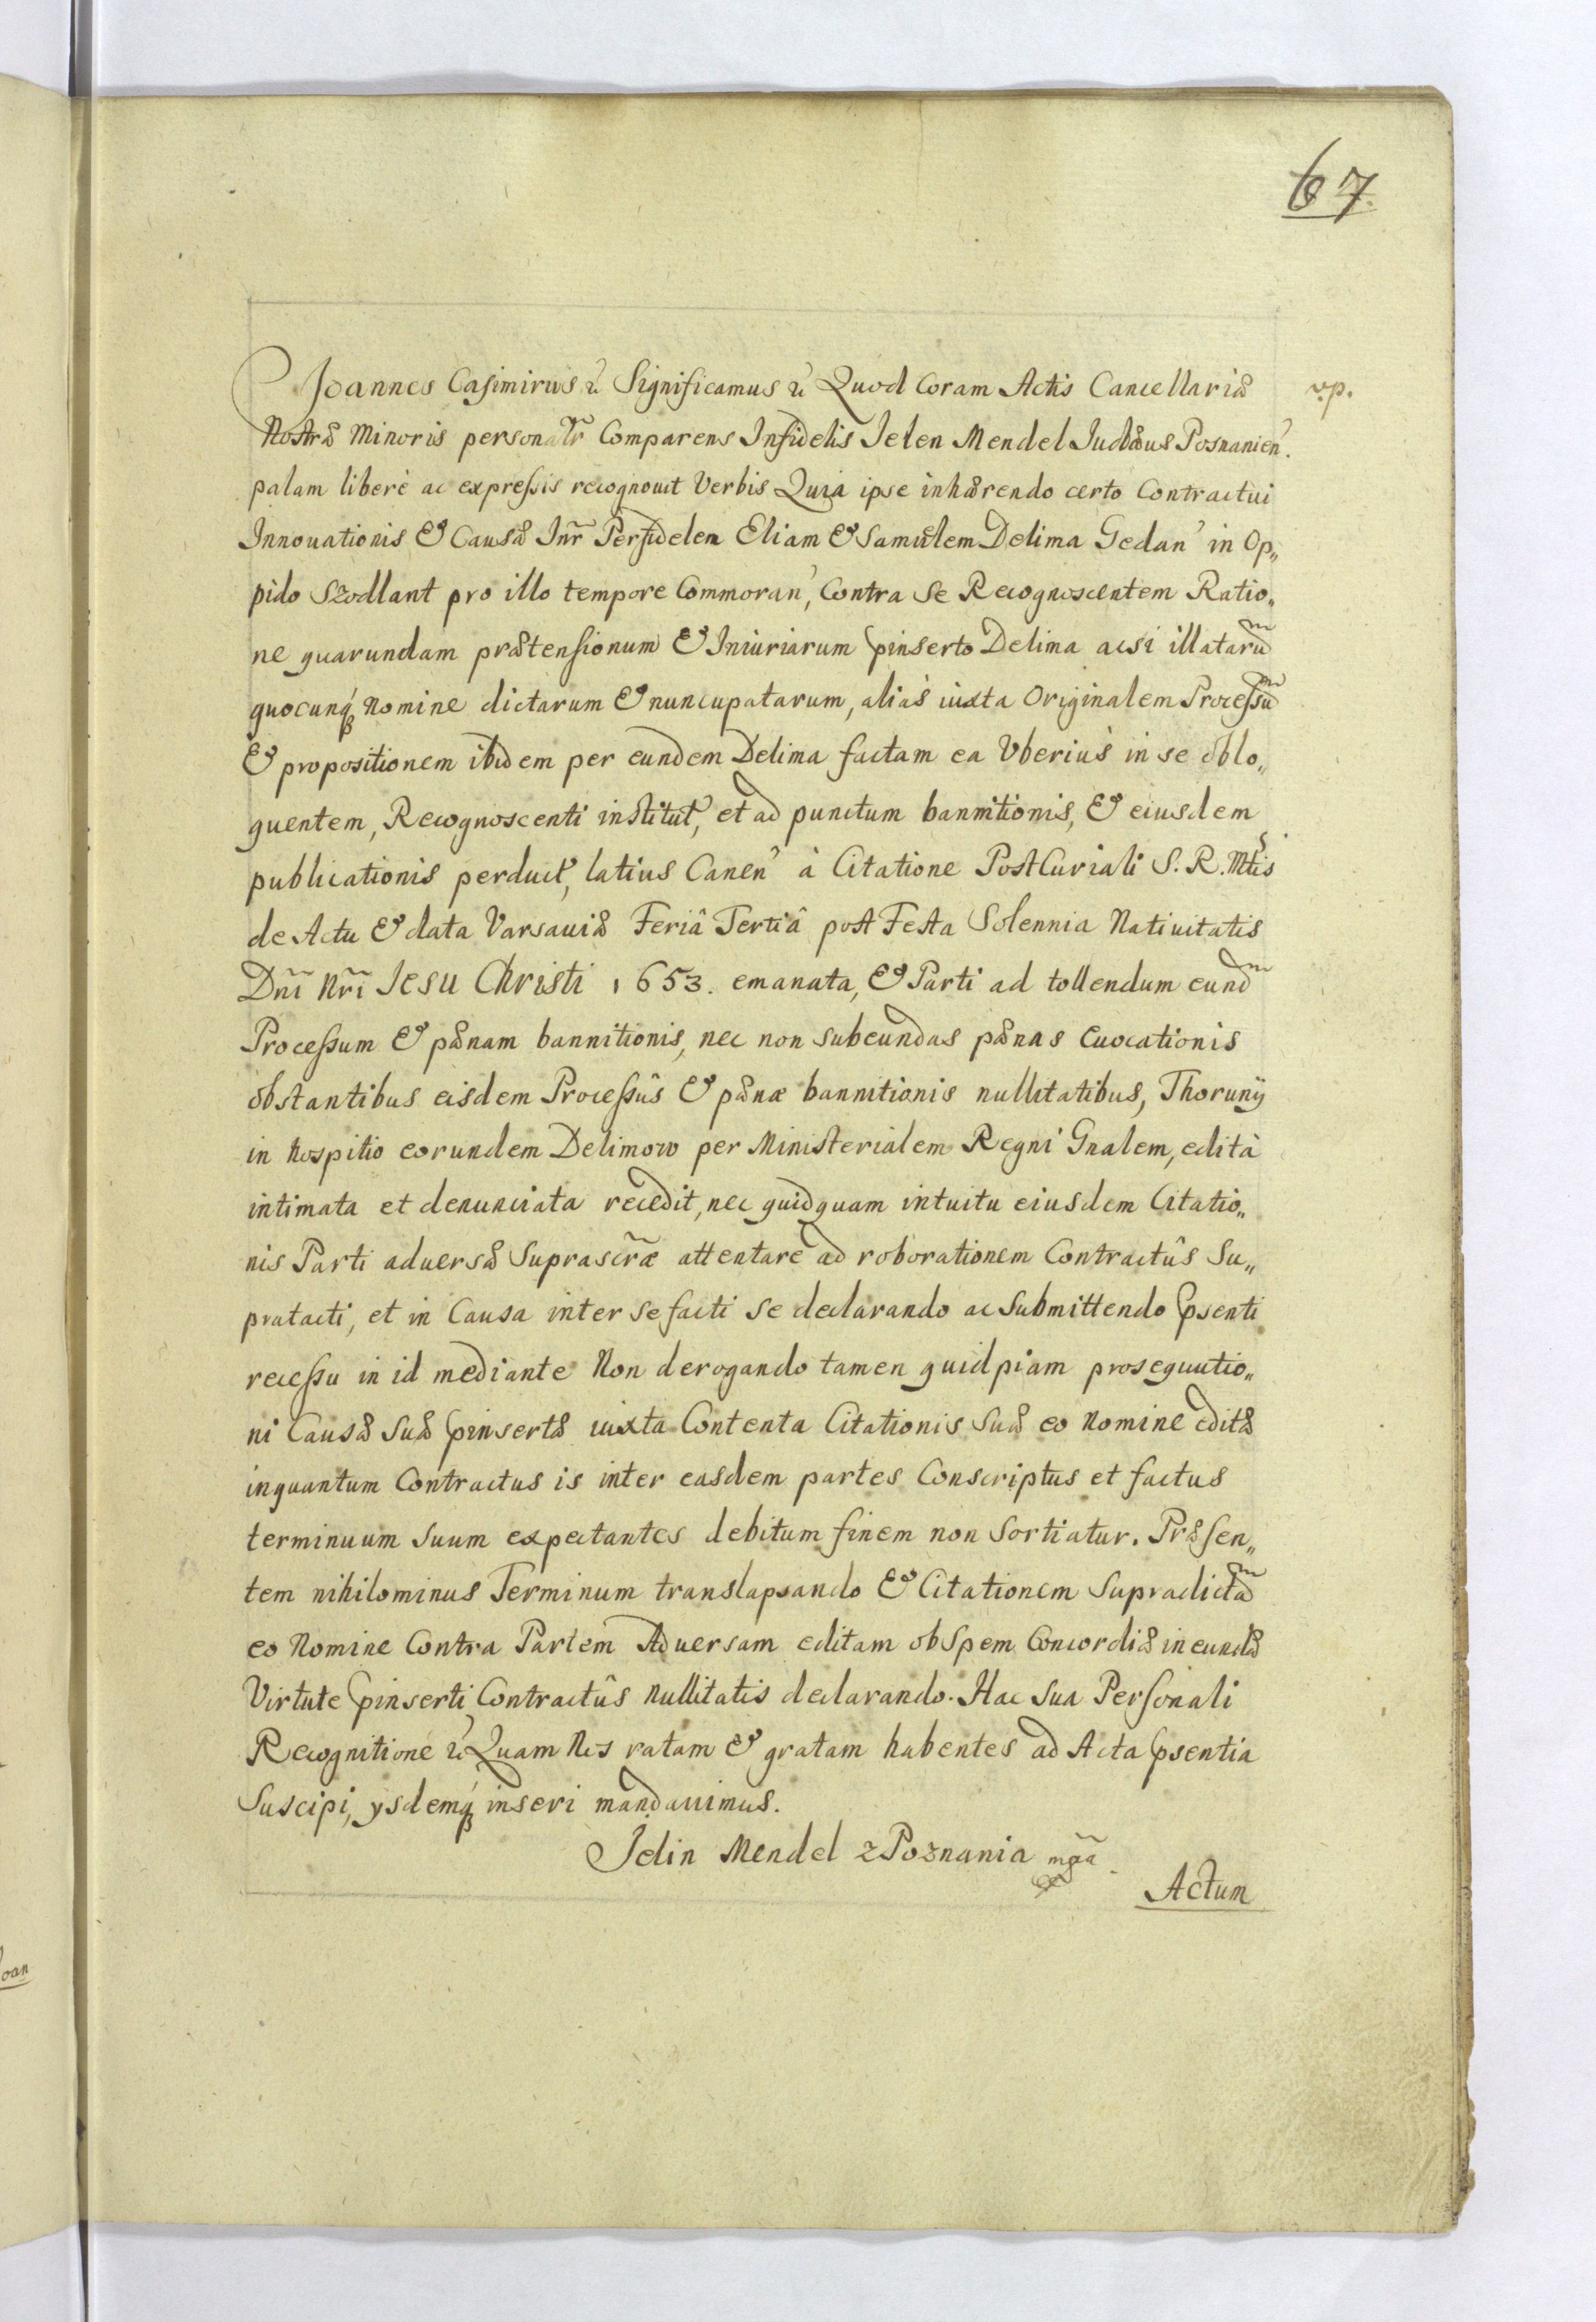 67
Joannes Casimirus &c Significamus &c Quod Coram Actis Cancellariæ
v.p.
Nostræ Minoris personalr̃ Comparens Infidelis Jelen Mendel Judæus Posnanien̾.
palam liberè ac expressis recognouit Verbis Quia ipse inhærendo certo Contractui
Innouationis & Causæ Inr̃ Perfidelem Eliam & Samuelem Delima Gedan̾ in Op„
pido Szodlant pro illo tempore Commoran̾, Contra se Recognoscentem Ratio„
ne quarundam prætensionum & Iniuriarum pinserto Delima acsi illatarũm
quocunq́ Nomine dictarum & nuncupatarum, aliàs iuxta Originalem Processũm
& propositionem ibidem per eundem Delima factam ea Vberiùs in se oblo„
quentem, Recognoscenti institut̾, et ad punctum bannitionis, & eiusdem
publicationis perduct̾, latius Canen̾ à Citatione PostCuriali S. R. Mtis
de Actu & data Varsauiæ Feriâ Tertiâ post Festa Solennia Natiuitatis
Dñi Nr̃i Jesu Christi 1653. emanata, & Parti ad tollendum eund̃m
Processum & pænam bannitionis, nec non subeundas pænas Euocationis
obstantibus eisdem Processûs & pænæ bannitionis nullitatibus, Thorunÿ
in hospitio eorundem Delimow per Ministerialem Regni Gnalem, edità
intimata et denunciata recedit, nec quidquam intuitu eiusdem Citatio„
nis Parti aduersæ Suprascr̃æ attentare ad roborationem Contractûs Su„
pratacti, et in Causa inter se facti se declarando ac Submittendo psenti
recessu in id mediante Non derogando tamen quidpiam prosequutio„
ni Causæ Suæ pinsertæ iuxta Contenta Citationis Suæ eo Nomine editæ
inquantum Contractus is inter easdem partes Conscriptus et factus
terminuum suum expectantes debitum finem non Sortiatur. Præsen„
tem nihilominus Terminum translapsando & Citationem Supradictãm
eo Nomine Contra Partem Aduersam editam ob Spem Concordiæ ineundæ
Virtute pinserti Contractûs Nullitatis declarando. Hac Sua Personali
Recognitione &c Quam Nos ratam & gratam habentes ad Acta psentia
Suscipi, ysdemq́ inseri mandauimus.
Jelin Mendel z Poznania mp̃a
Actum
oan